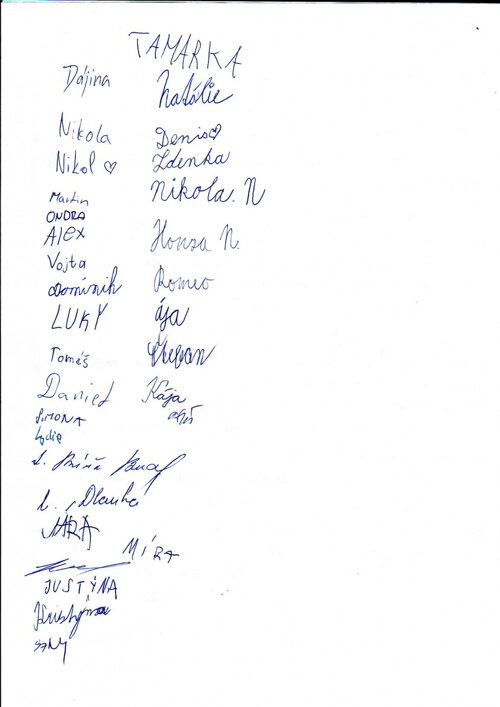 TAMARKA
Dájina Natálie
Nikola Denis♡
Nikol ♡ Zdenka
Martin Nikola. N
ONDRA
Alex Honza N.
Vojta
Dominik Romeo
LUKY ája
Tomáš Štěpán
Daniel Kája
SIMONA
Lydie
Dlouhá
MÍRA
JUSTÝNA
Kristýna